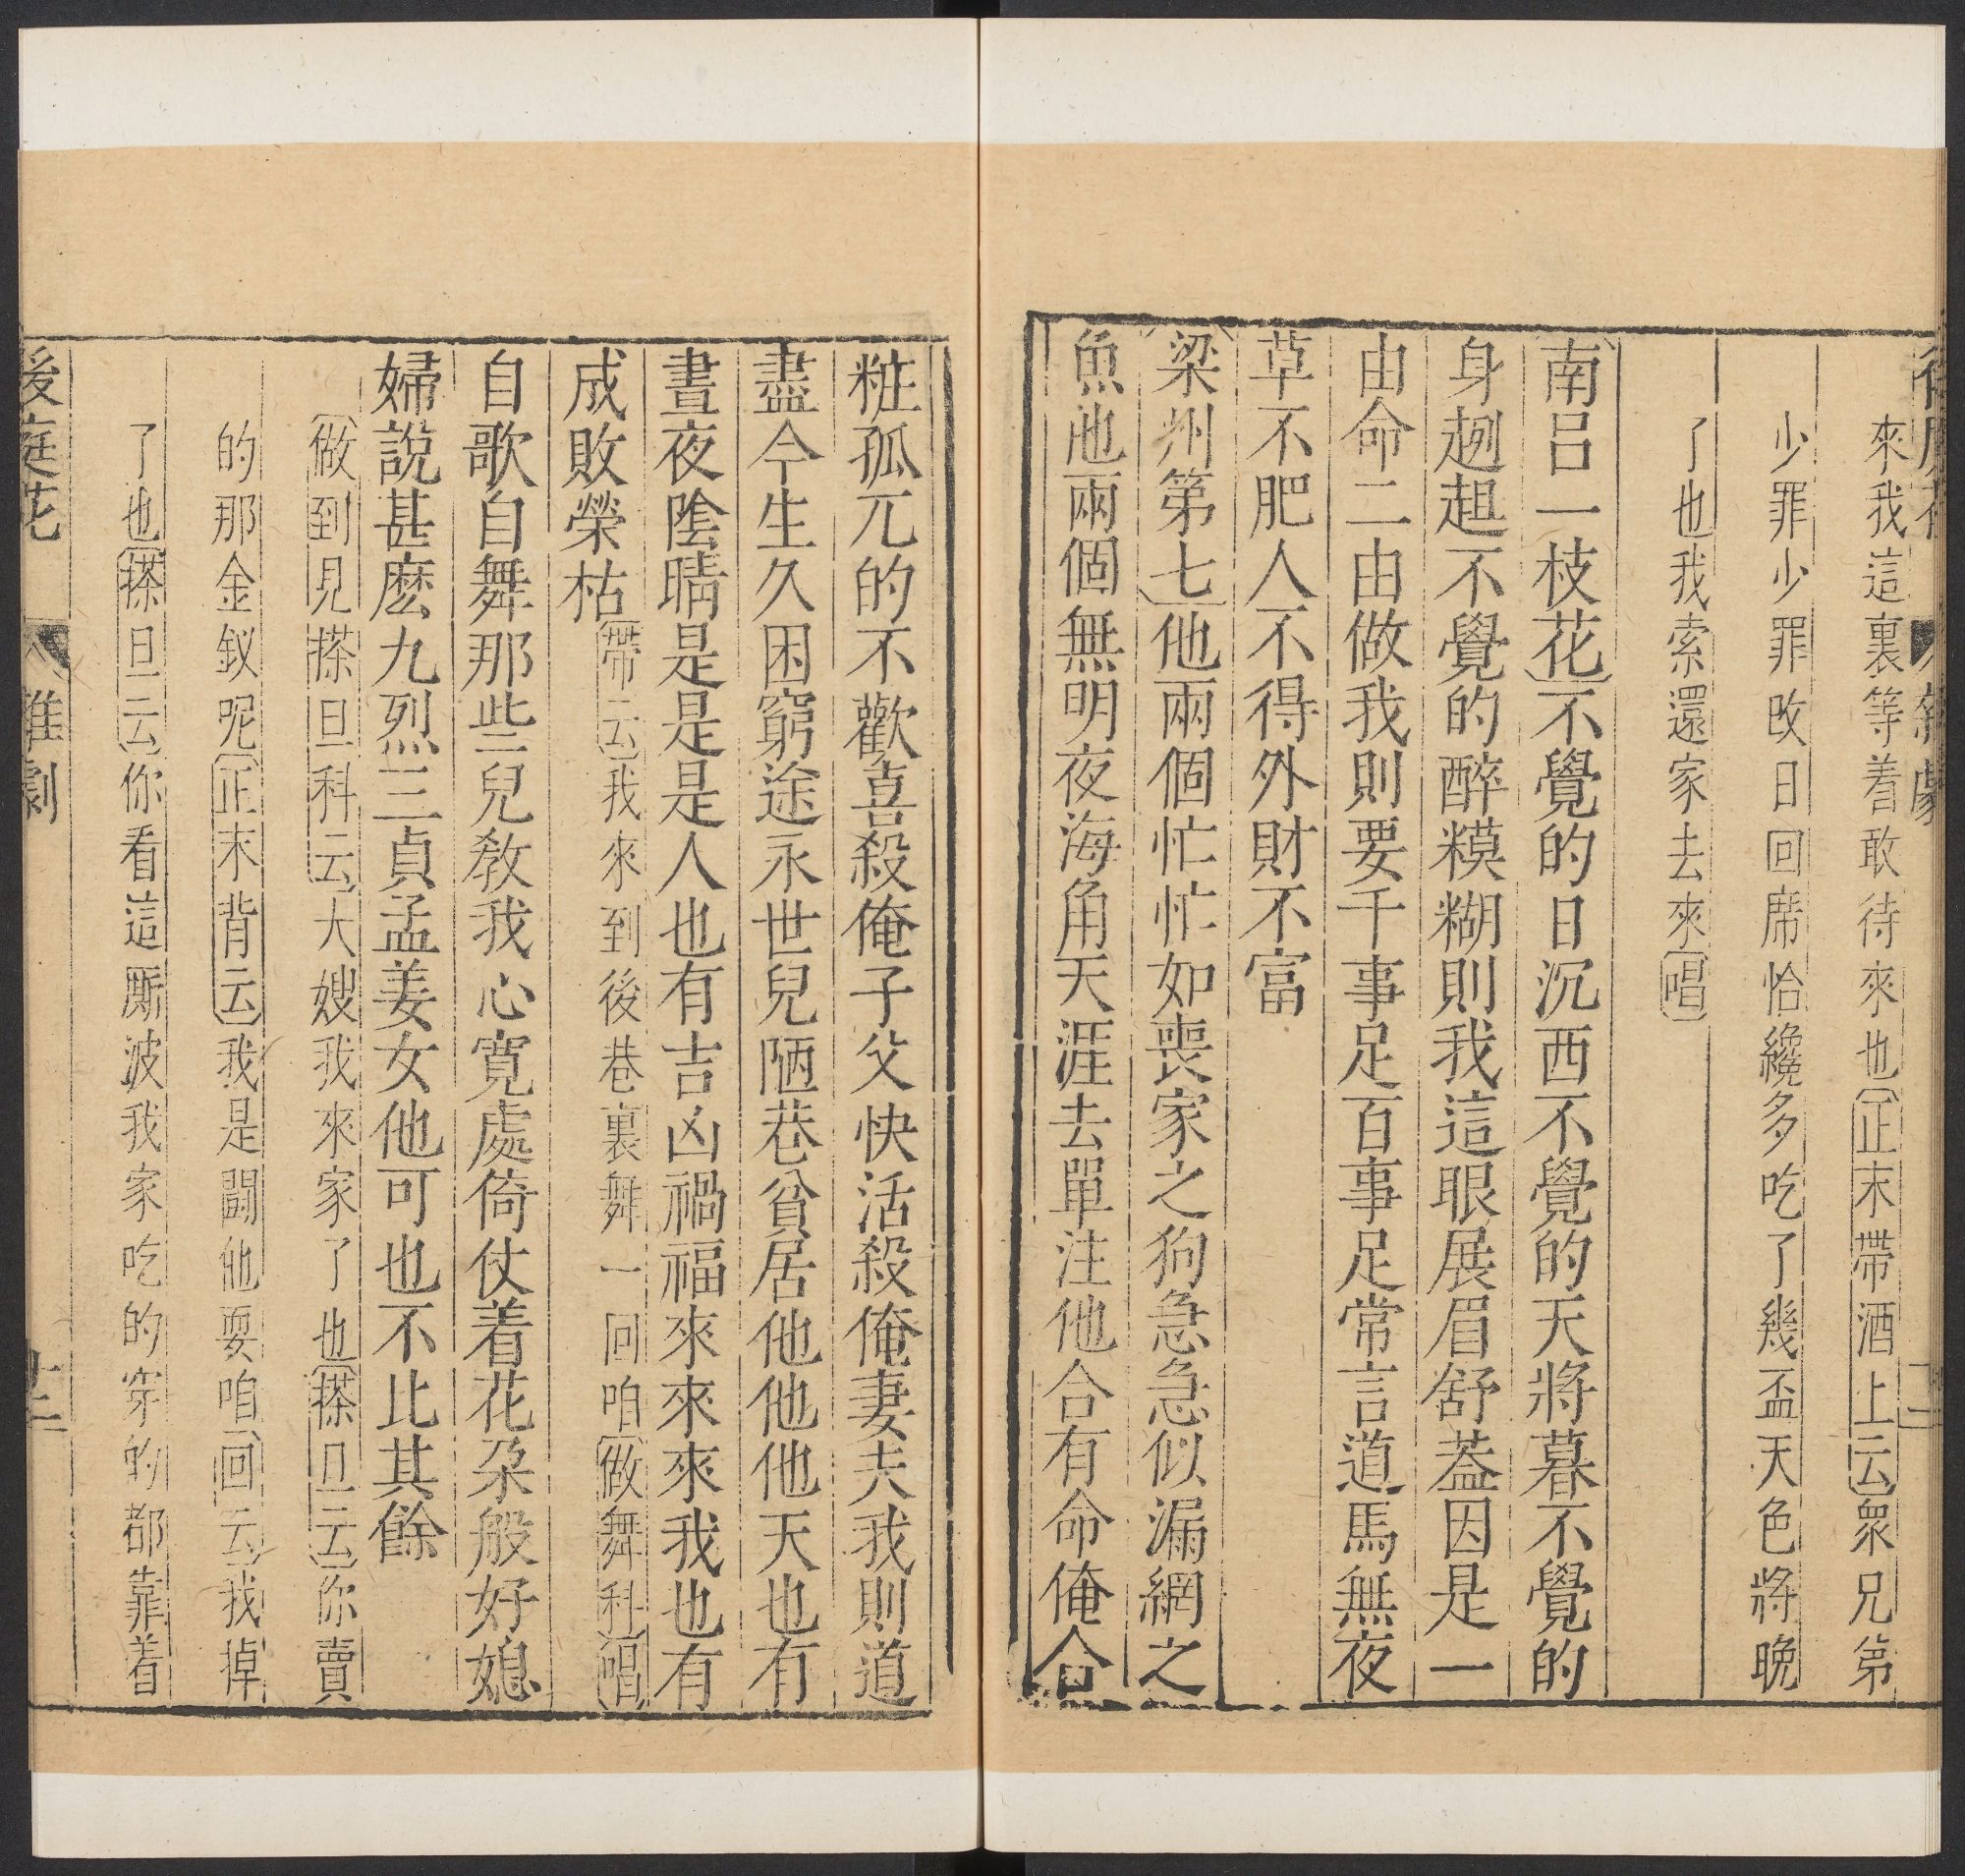 來我這裏等着敢待來也正末帶酒上云衆兄弟
少罪少罪改日回席恰纔多吃了幾盃天色將晚
了也我索還家去來唱
南呂一枝花不覺的日沉西不覺的天將暮不覺的
身趔趄不覺的醉糢糊則我這眼展眉舒葢因是一
由命二由做我則要千事足百事足常言道馬無夜
草不肥人不得外財不富
梁州第七他兩個忙忙如喪家之狗急急似漏網之
魚他兩個無明夜海角天涯去單注他合有命俺合
粧孤兀的不歡喜殺俺子父快活殺俺妻夫我則道
盡今生久困窮途永世兒陋巷貧居他他他天也有
晝夜陰晴是是是人也有吉凶禍福來來來我也有
成敗榮枯帶云我來到後巷裏舞一回咱做舞科唱
自歌自舞那些兒敎我心寛處倚仗着花朶般好媳
婦說甚麽九烈三貞孟姜女他可也不比其餘
做到見搽旦科云大嫂我來家了也搽旦云你賣
的那金釵呢正末背云我是鬭他耍咱回云我掉
了也搽旦云你看這厮波我家吃的穿的都靠着
後庭花 雜劇 十二